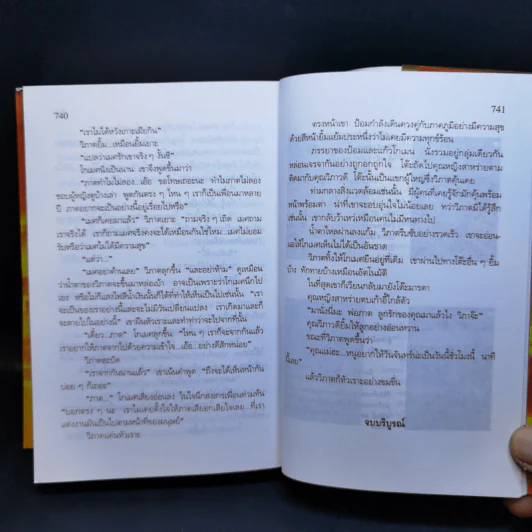 740
"เราไม่ได้หวังเกาะเมียกิน"
วิภาคยิ้ม...เหมือนยิ้มเยาะ
"แปลว่าเมครักเขาจริงๆ งั้นสิ"
โกเมศนิ่งเป็นนาน เขาจึงพูดขึ้นมาว่า
"ภาคทำไมไม่ลอง...เอ้อ ขอโทษเถอะนะ ทำไมภาคไม่ลอง
ชอบผู้หญิงดูบ้างเล่า พูดกันตรง ๆ ไหน ๆ เราก็เป็นเพื่อนมาหลาย
ปี ภาคอยากจะเป็นอย่างนี้อยู่เรื่อยไปหรือ"
"เมคก็เคยมาแล้ว" วิภาคเยาะ "ถามจริงๆ เถิด เมคถาม
เราจริงได้ เราก็ถามเมคจริงคงจะได้เหมือนกันใช่ไหม...เมคไม่ยอม
รับหรือว่าเมคไม่ได้มีความสุข"
"แต่ว่า..."
"เมคอย่าค้านเลย" วิภาคลุกขึ้น "และอย่าห้าม" ดูเหมือน
"เรา
จะเป็นของเราอย่างนี้และจะไม่มีวันเปลี่ยนแปลง เราเกิดมาและก็
จะตายไปในอย่างนี้" เขาหันหัวเราะและทำท่าว่าจะไปจากที่นั้น
"เดี๋ยว...ภาค" โกเมศลุกขึ้น "ไหน ๆ เราก็จะจากกันแล้ว
เราอยากให้ภาคจากไปด้วยความเข้าใจ...เอ้อ...อย่างดีสักหน่อย"
วิภาคชะงัด
"เราจากกันนานแล้ว" เขาเน้นคำพูด "ถึงจะได้เห็นหน้ากัน
บ่อย ๆ ก็เถอะ"
"ภาค..." โกเมศเสียงอ่อนลง ในใจนึกสงสารเพื่อนท่วมท้น
"บอกตรง ๆ นะ เราไม่เคยตั้งใจให้ภาคเสียอกเสียใจเลย...ที่เรา
แต่งงานมันเป็นไปตามหน้าที่ของมนุษย์"
วิภาคแค่นหัวเราะ
741
ตรงหน้าเขา ป้อมกำลังเดินควงคู่กับภาคภูมิอย่างมีความสุข
ด้วยสีหน้ายิ้มแย้มประหนึ่งว่าไม่เคยมีความทุกข์ร้อน
ภรรยาของป้อมและแก้วโกเมน นั่งรวมอยู่กลุ่มเดียวกัน
หล่อนเจรจากันอย่างถูกอกถูกใจ โต๊ะถัดไปคุณหญิงสาหร่ายตาม
ติดมากับคุณวิภาวดี โต๊ะนั้นเป็นแขกผู้ใหญ่ซึ่งวิภาคคุ้นเคย
ท่ามกลางสิ่งแวดล้อมเช่นนั้น มีผู้คนที่เคยรู้จักมักคุ้นพร้อม
หน้าพร้อมตา น่าที่เขาจะอบอุ่นใจไม่น้อยเลย ทว่าวิภาคมิได้รู้สึก
เช่นนั้น เขากลับว้าเหว่เหมือนคนไม่มีหนทางไป
น้ำตาไหลผ่านลงแก้ม วิภาครีบซับอย่างรวดเร็ว เขาจะอ่อน-
แอให้โกเมศเห็นไม่ได้เป็นอันขาด
วิภาคทิ้งให้โกเมศยืนอยู่ที่เดิม เขาผ่านไปทางโต๊ะอื่น ๆ ยิ้ม
บ้าง ทักทายบ้างเหมือนอัตโนมัติ
ในที่สุดเขาก็เวียนกลับมายังโต๊ะมารดา
คุณหญิงสาหร่ายตบเก้าอี้ใกล้ตัว
"มานั่งนี่มะ พ่อภาค ลูกรักของคุณมาแล้วไง วิภาจ๊ะ"
คุณวิภาวดียิ้มให้ลูกอย่างอ่อนหวาน
ขณะที่วิภาคพูดขึ้นว่า
"คุณแม่ฮะ...หนูอยากให้วันจันทร์นะเป็นวันนี้ชั่วโมงนี้ นาที
นี้เลย"
แล้ววิภาคก็หัวเราะอย่างขมขื่น
จบบริบูรณ์